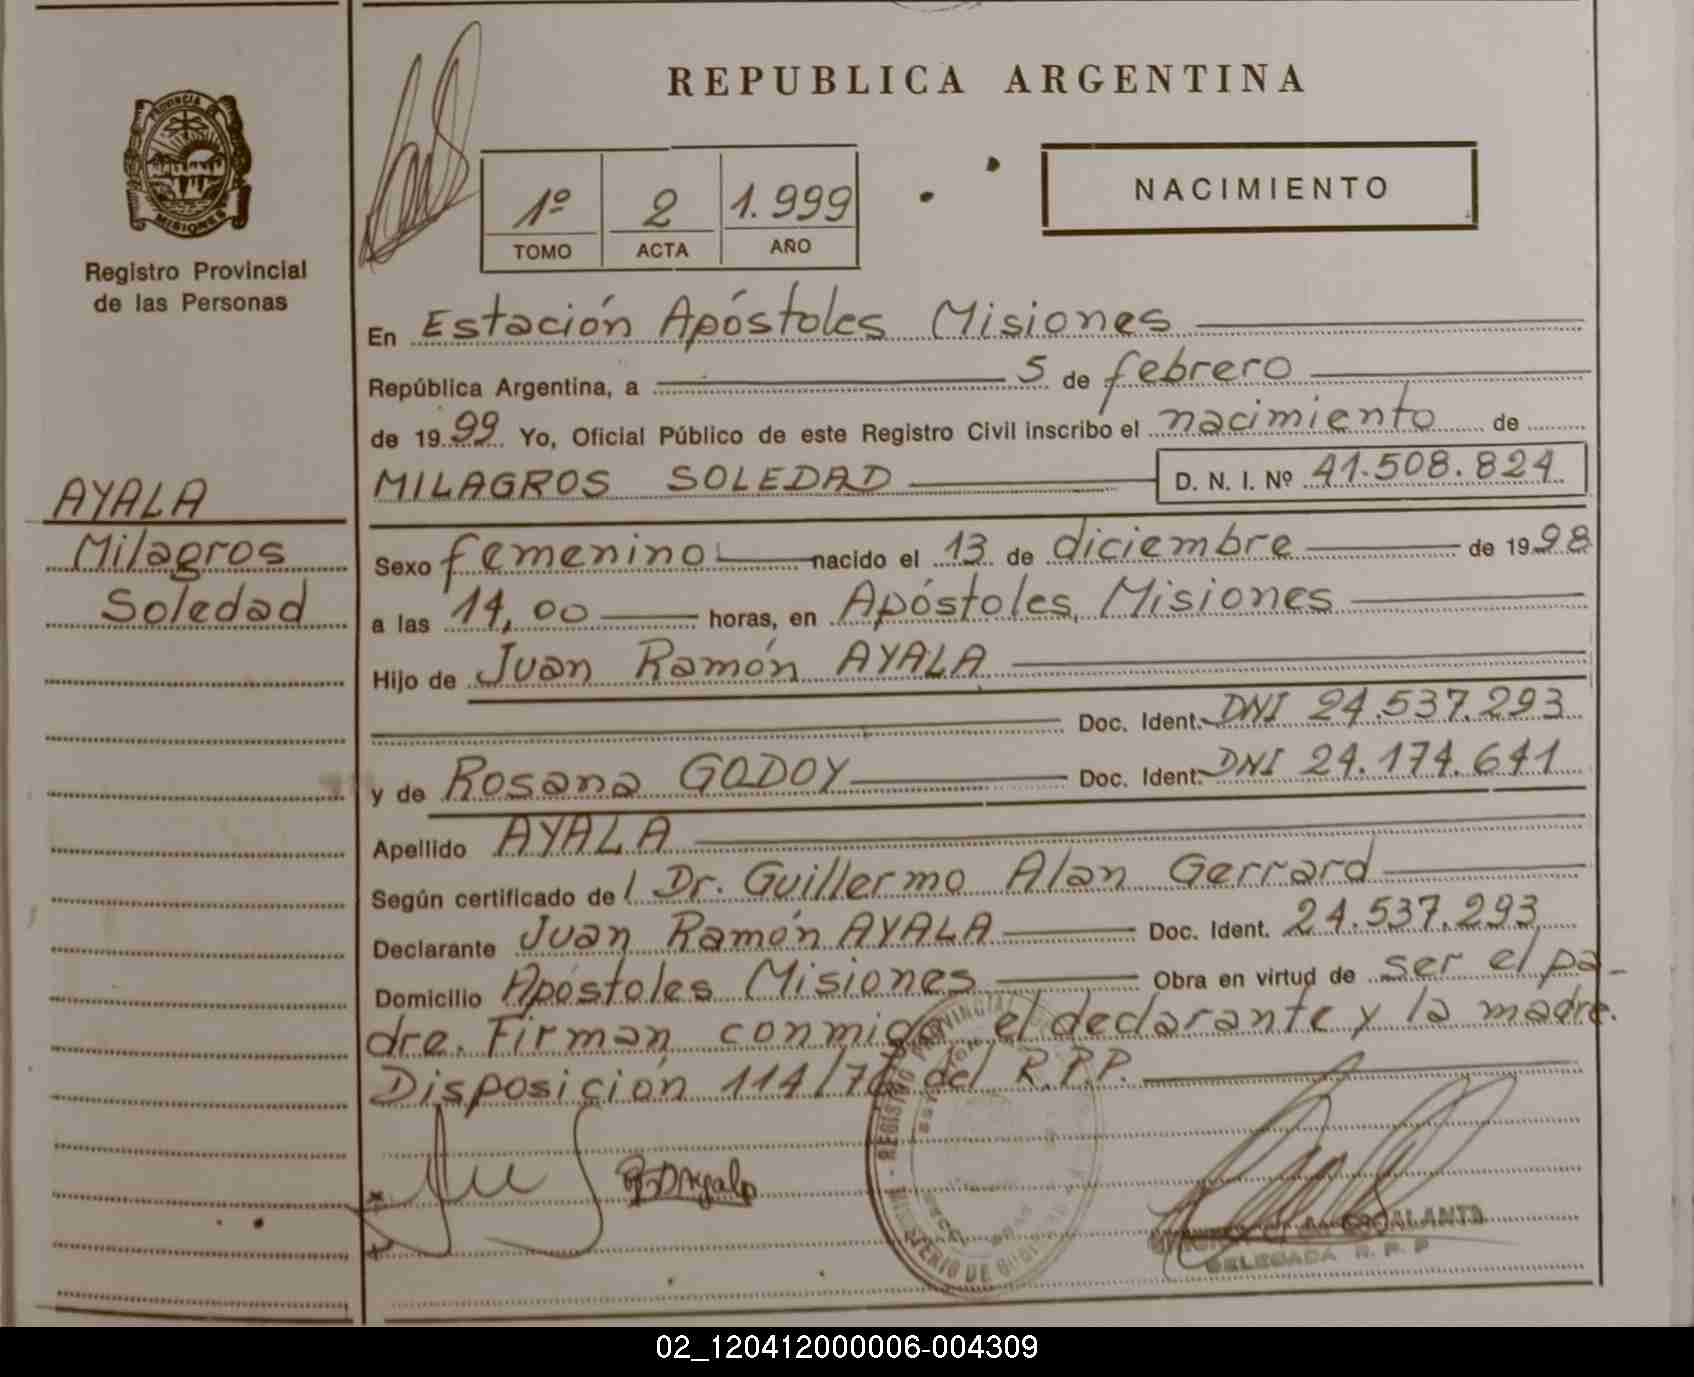 REPUBLICA ARGENTINA
PROVINCIA DE
MISIONES
Registro Provincial
de las Personas
1º 2 1.999
TOMO ACTA AÑO
NACIMIENTO
En Estación Apóstoles Misiones
República Argentina, a 5 de febrero
de 1999 Yo, Oficial Público de este Registro Civil inscribo el nacimiento de
MILAGROS SOLEDAD D. N. I. Nº 41.508.824
AYALA
Milagros
Soledad
Sexo femenino nacido el 13 de diciembre de 1998
a las 14,00 horas, en Apóstoles, Misiones
Hijo de Juan Ramón AYALA
Doc. Ident. DNI 24.537.293
y de Rosana GODOY Doc. Ident. DNI 24.174.641
Apellido AYALA
Según certificado de l Dr. Guillermo Alan Gerrard
Declarante Juan Ramón AYALA Doc. Ident. 24.537.293
Domicilio Apóstoles Misiones Obra en virtud de ser el pa-
dre. Firman conmigo el declarante y la madre.
Disposición 114/78 del R.P.P.
REGISTRO PROVINCIAL
MINISTERIO DE
DELEGADA R. P. P.
02_120412000006-004309